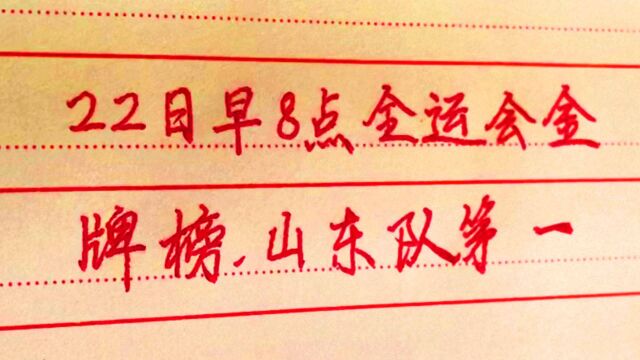 22日早8点全运会金
牌榜.山东队第一